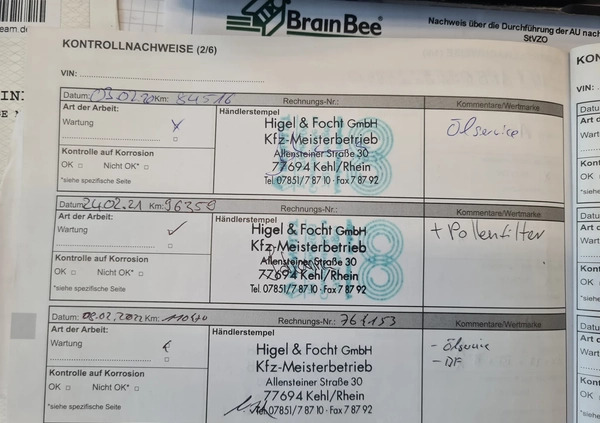 eam.d
BrainBee
Nachweis über die Durchführung der AU nach
StVZO
KONTROLLNACHWEISE (2/6)
VIN:
Datum: 03.02.20 Km: 84516 Rechnungs-Nr.: Kommentare/Wertmarke
Art der Arbeit: Händlerstempel
Wartung x
Higel & Focht GmbH
Kfz-Meisterbetrieb
Allensteiner Straße 30
77694 Kehl/Rhein
Tel. 07851/7 87 10 · Fax 7 87 92
Ölservice
Kontrolle auf Korrosion
OK □ Nicht OK* □
*siehe spezifische Seite
Datum: 24.02.21 Km: 96350 Rechnungs-Nr.: Kommentare/Wertmarke
Art der Arbeit: Händlerstempel
Wartung ✓
Higel & Focht GmbH
Kfz-Meisterbetrieb
Allensteiner Straße 30
77694 Kehl/Rhein
Tel. 07851/7 87 10 · Fax 7 87 92
+ Pollenfilter
Kontrolle auf Korrosion
OK □ Nicht OK* □
*siehe spezifische Seite
Datum: 08.02.2022 Km: Rechnungs-Nr.: Kommentare/Wertmarke
Art der Arbeit: Händlerstempel
Wartung
Higel & Focht GmbH
Kfz-Meisterbetrieb
Allensteiner Straße 30
77694 Kehl/Rhein
Tel. 07851/7 87 10 · Fax 7 87 92
- Ölservice
Kontrolle auf Korrosion
OK □ Nicht OK* □
*siehe spezifische Seite
KON
VIN: